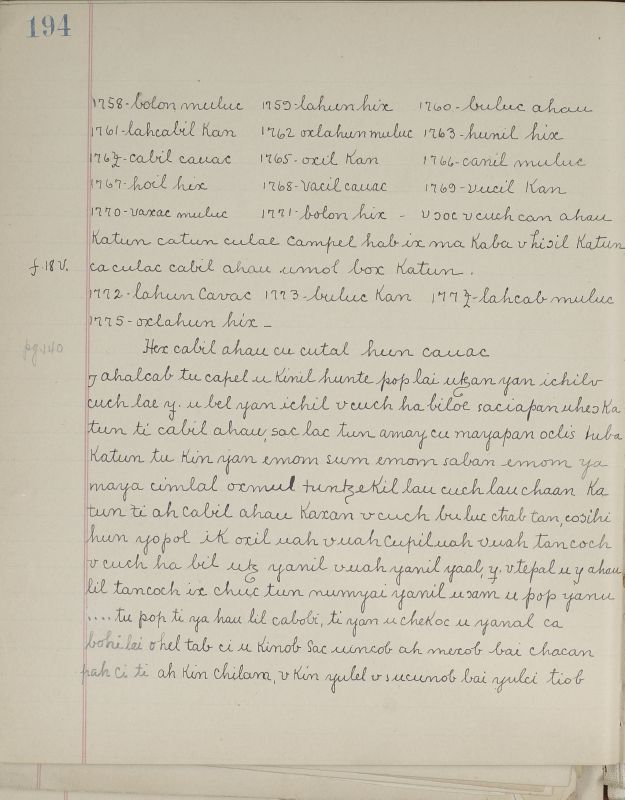 194
1758-bolon muluc 1759-lahun hix 1760-buluc ahau
1761-lahcabil Kan 1762 oxlahun muluc 1763-hunil hix
1764-cabil cauac 1765-oxil Kan 1766-canil muluc
1767-hoil hix 1768-vacil cauac 1769-vucil Kan
1770-vaxac muluc 1771-bolon hix - vɔoc v cuch can ahau
Katun catun culac campel hab ix ma Kaba v hiɔil Katun
f. 18 v. ca culac cabil ahau u mol box Katun.
1772-lahun Cavac 1773-buluc Kan 1774-lahcab muluc
1775-oxlahun hix -
pg. 140 Hex cabil ahau cu cutal hun cauac
y ahalcab tu capel u Kinil hunte pop lai utzan yan ichil v
cuch lae y. u bel yan ichil v cuch ha biloe saciapan uheɔ Ka
tun ti cabil ahau, sac lac tun amay cu mayapan oclis tuba
Katun tu Kin yan emom sum emom saban emom ya
maya cimlal oxmul tuntzeKil lau cuch lau chaan Ka
tun ti ah cabil ahau Kaxan v cuch buluc chab tan, cosihi
hun yopol iK oxil uah v uah cupiluah v uah tancoch
v cuch ha bil utz yanil v uah yanil yaal, y. v tepal u y ahau
lil tancoch ix chuc tun numyai yanil u sam u pop yanu
.... tu pop ti ya hau lil cabobi, ti yan u cheKoc u yanal ca
bohi lai ohel tab ci u Kinob sac uincob ah mexob bai chacan
pah ci ti ah Kin chilam, v Kin yulel v sucunob bai yulci tiob